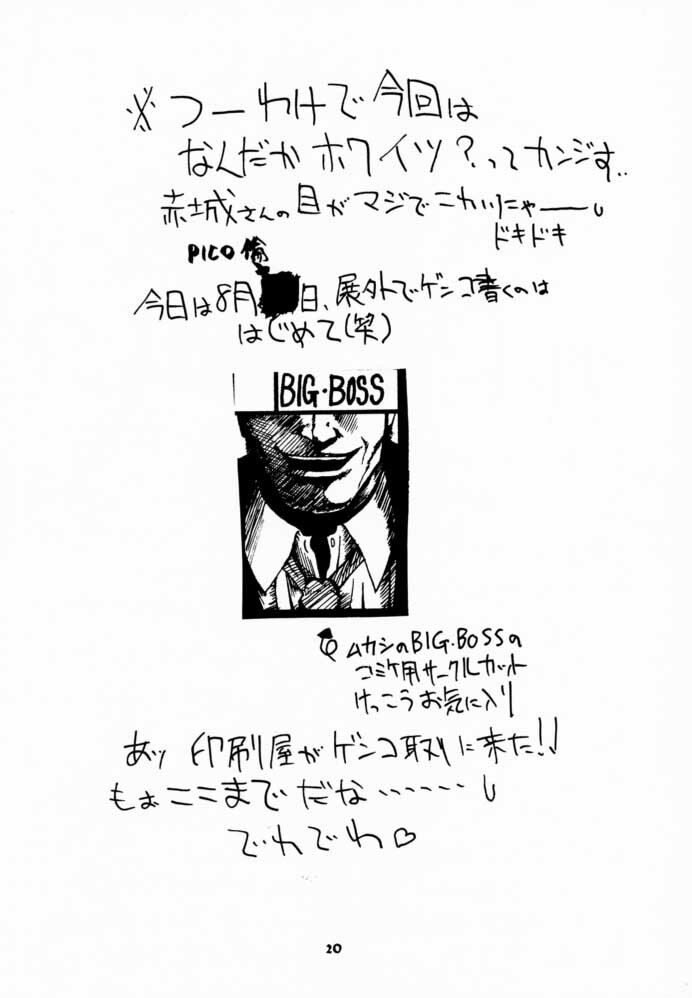 ※つーわけで今回は
なんだかホワイツ?ってカンジす..
赤城さんの目がマジでこわいにゃー
ドキドキ
PICO倫
今日は8月 日、展外でゲンコ書くのは
はじめて(笑)
BIG・BOSS
ムカシのBIG・BOSSの
コミケ用サークルカット
けっこうお気に入り
あッ 印刷屋がゲンコ取りに来た!!
もぉここまでだな……
でわでわ♡
20